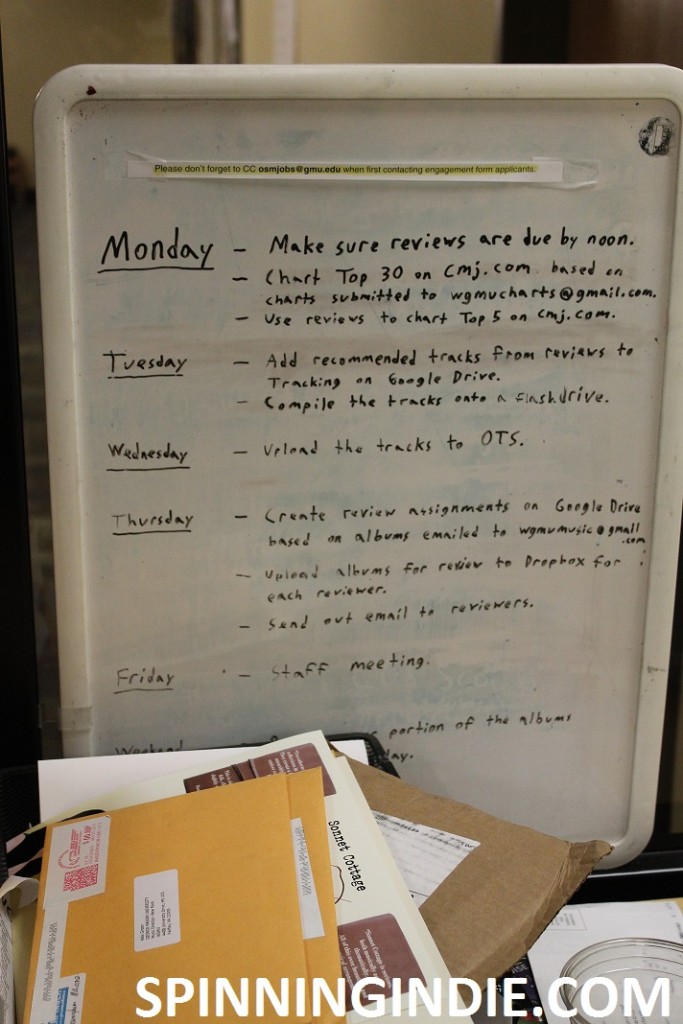 Please don't forget to CC osmjobs@gmu.edu when first contacting engagement form applicants.
Monday - Make sure reviews are due by noon.
- Chart Top 30 on cmj.com based on
charts submitted to wgmucharts@gmail.com.
- Use reviews to chart Top 5 on cmj.com.
Tuesday - Add recommended tracks from reviews to
Tracking on Google Drive.
- Compile the tracks onto a flashdrive.
Wednesday - Upload the tracks to OTS.
Thursday - Create review assignments on Google Drive
based on albums emailed to wgmumusic@gmail
.com
- Upload albums for review to Dropbox for
each reviewer.
- Send out email to reviewers.
Friday - Staff meeting.
Weekend portion of the albums
Sonnet Cottage
SPINNINGINDIE.COM